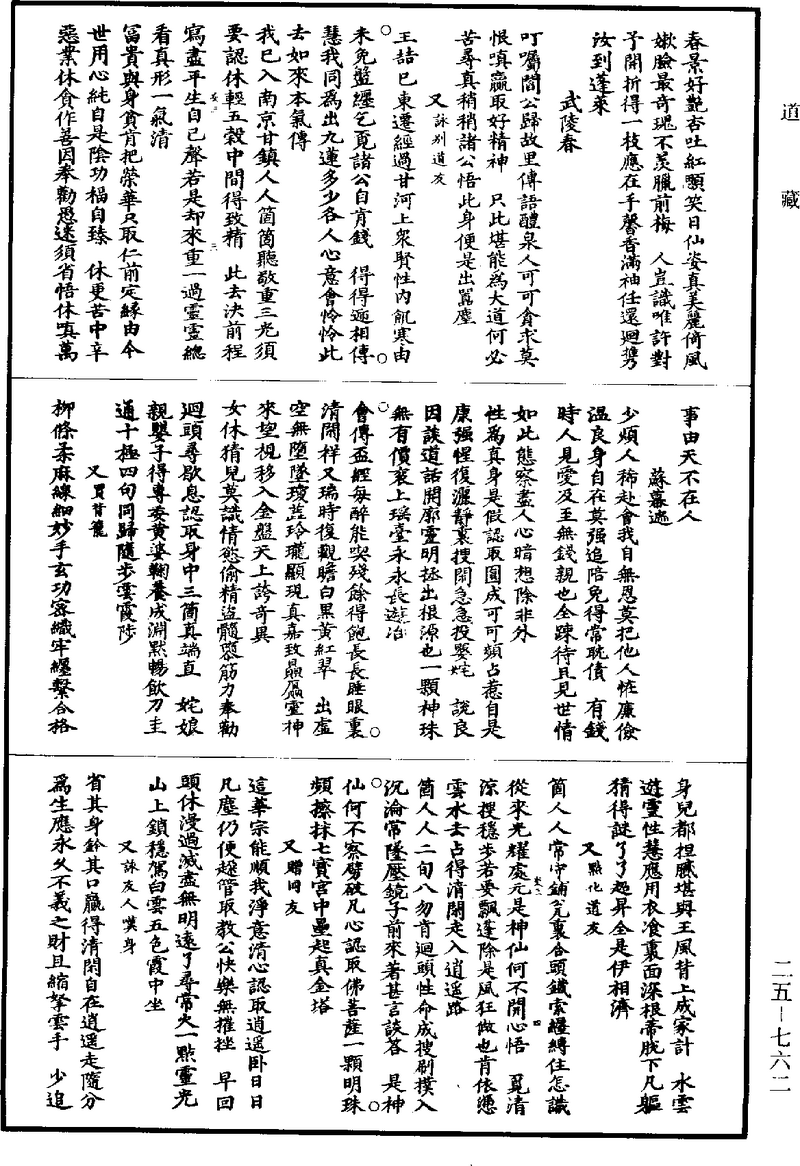 道藏
春景好艷杏吐紅顋笑日仙姿真美麗倚風
嫩臉最奇瑰不羨臘前梅　人豈識唯許對
予開折得一枝應在手馨香滿袖任還迴携
汝到蓬萊
武陵春
叮囑閻公歸故里傳語醴泉人可可貪求莫
恨嗔贏取好精神　只此堪能為大道何必
苦尋真稍稍諸公悟此身便是出囂塵
又詠别道友
王喆已東遷經過甘河上衆賢性內飢寒由
未免盤纏乞覓諸公自肯錢　得得逓相傳
慧我同為出九蓮多少各人心意會怜怜此
去如來本氣傳
我已入南京甘鎮人人箇箇聽敬重三光須
要認休輕五穀中間得致精　此去決前程
寫盡平生自己聲若是却來重一過靈靈總
看真形一氣清
冨貴與身貪肯把榮華只取仁前定緣由今
世用心純自是陰功福自臻　休更苦中辛
惡業休貪作善因奉勸愚迷須省悟休嗔萬
事由天不在人
蘇幕遮
少煩人稀赴會我自無恩莫把他人恠廉儉
温良身自在莫强追陪免得常耽債　有錢
時人見愛及至無錢親也全踈待且見世情
如此態察盡人心暗想除非外
性為真身是假認取圓成可可頻占惹自是
康强惺復灑静裏搜閑急急投嬰姹　説良
因談道話開廓靈明拯出根源也一顆神珠
無有價裹上瑶臺永永長遊冶
會傳盃經每醉能喫殘餘得飽長長睡眼裏
清閑样又瑞時復觀瞻白黑黃紅翠　出虛
空無墮墜瓊蘂玲瓏顯現真嘉致贔屭靈神
來望視移入金盤天上誇奇異
女休猜兒莫識情慾偷精盜髓㽷筋力奉勸
迴頭尋歇息認取身中三箇真端直　姹娘
親嬰子得專委黃婆鞠養成淵默暢飲刀圭
通十極四句同歸隨步雲霞陟
又買笊籠
柳條柔麻線細妙手玄功密織牢纏繫合格
身兒都担臟堪與王風背上成家計　水雲
遊靈性慧應用衣飡裏面深根蔕脱下凡軀
猜得謎了了超昇全是伊相濟
又點化道友
箇人人常守鋪瓮裏合頭鐵索纏縛住怎識
從來光耀處元是神仙何不開心悟　覓清
涼搜穩步若要飄蓬除是風狂做也肯依憑
雲水去占得清閑走入逍遥路
箇人人二旬八勿肯迴頭性命成搜刷撲入
沉淪常墮壓鏡子前來著甚言談荅　是神
仙何不察劈破凡心認取佛菩薩一顆明珠
頻擦抹七寳宮中壘起真金塔
又贈同友
這華宗能順我淨意清心認取逍遥卧日日
凡塵仍便趓管取教公快樂無摧挫　早回
頭休漫過滅盡無明遠了尋常火一點靈光
山上鎖穩駕白雲五色霞中坐
又詠友人嘆身
省其身鈴其口贏得清閑自在逍遥走隨分
為生應永久不義之財且縮拏雲手　少追
二五—七六二